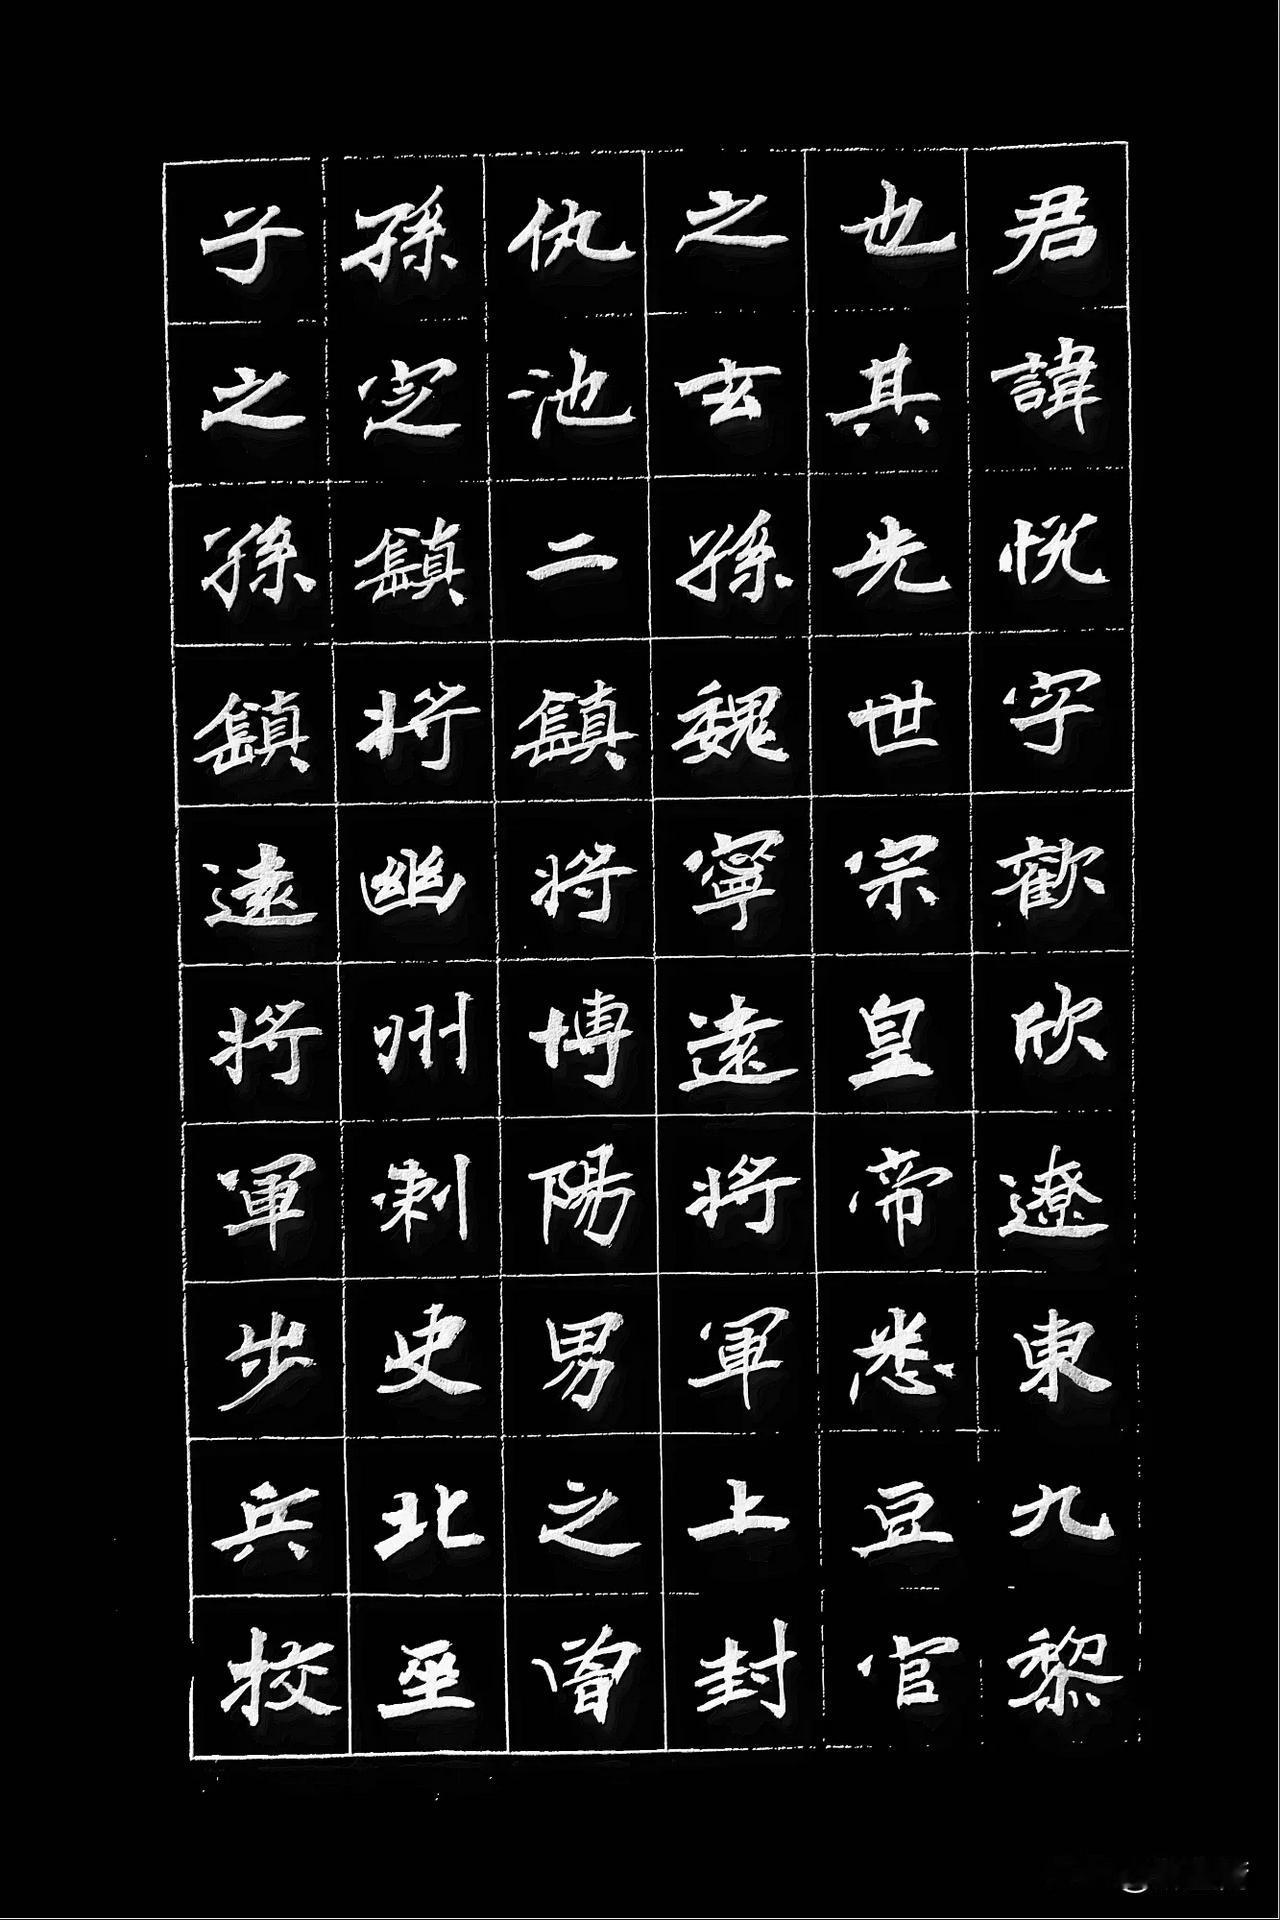 君諱悦字歡欣遼東九黎
也其先世宗皇帝悉豆官
之玄孫魏寧遠將軍上封
仇池二鎮將博陽男之曾
孫定鎮將幽州刺史北
子之孫鎮遠將軍步兵校